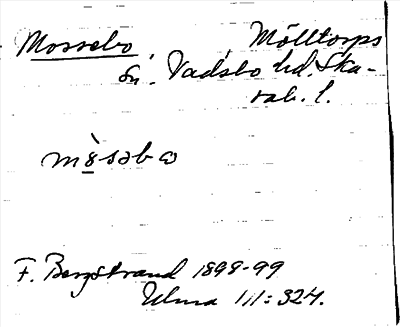 Mossebo, Mölltorps
sn. Vadsbo hd. Ska-
rab. l.
mòsəbω
F. Bergstrand 1898-99
Ulma 111:324.